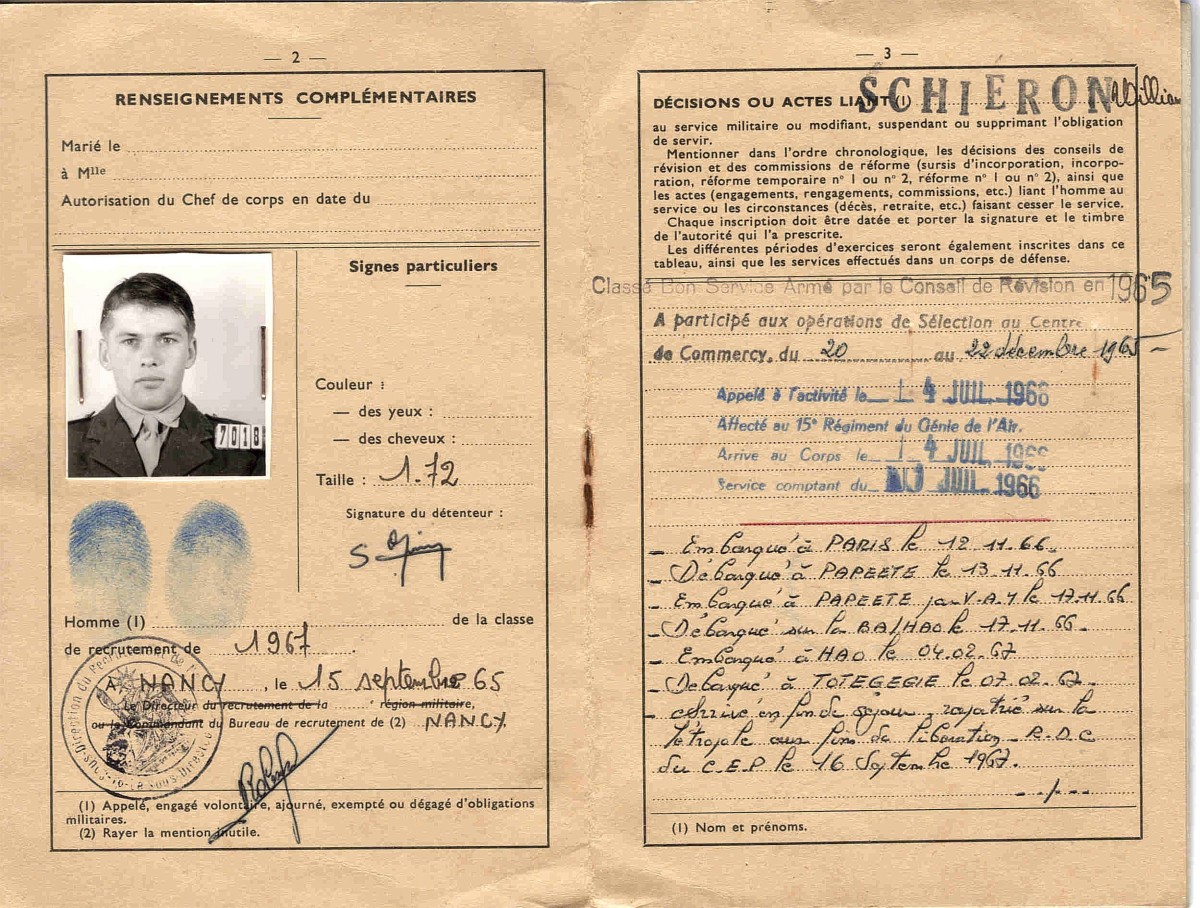 — 2 —
RENSEIGNEMENTS COMPLÉMENTAIRES
Marié le
à Mlle
Autorisation du Chef de corps en date du
Signes particuliers
7018
Couleur :
— des yeux :
— des cheveux :
Taille : 1.72
Signature du détenteur :
Homme (1) de la classe
de recrutement de 1967
À NANCY, le 15 septembre 65
Le Directeur du recrutement de la région militaire,
ou le Commandant du Bureau de recrutement de (2) NANCY
(1) Appelé, engagé volontaire, ajourné, exempté ou dégagé d'obligations
militaires.
(2) Rayer la mention inutile.
— 3 —
SCHIERON William
DÉCISIONS OU ACTES LIANT (1)
au service militaire ou modifiant, suspendant ou supprimant l'obligation
de servir.
Mentionner dans l'ordre chronologique, les décisions des conseils de
révision et des commissions de réforme (sursis d'incorporation, incorpo-
ration, réforme temporaire n° 1 ou n° 2, réforme n° 1 ou n° 2), ainsi que
les actes (engagements, rengagements, commissions, etc.) liant l'homme au
service ou les circonstances (décès, retraite, etc.) faisant cesser le service.
Chaque inscription doit être datée et porter la signature et le timbre
de l'autorité qui l'a prescrite.
Les différentes périodes d'exercices seront également inscrites dans ce
tableau, ainsi que les services effectués dans un corps de défense.
Classé Bon Service Armé par le Conseil de Révision en 1965
A participé aux opérations de Sélection au Centre
de Commercy, du 20 au 22 décembre 1965 —
Appelé à l'activité le 1 4 JUIL 1966
Affecté au 15e Régiment du Génie de l'Air.
Arrive au Corps le 1 4 JUIL 1966
Service comptant du JUIL. 1966
— Embarqué à PARIS le 12.11.66.
— Débarqué à PAPEETE le 13.11.66
— Embarqué à PAPEETE par V.A.Y le 17.11.66
— Débarqué sur la BA/HAO le 17.11.66.
— Embarqué à HAO le 04.02.67
— Débarqué à TOTEGEGIE le 07.02.67.
— Arrivé en fin de séjour, rapatrié sur la
Métropole aux fins de libération - R.D.C
du C.E.P le 16 Septembre 1967.
(1) Nom et prénoms.